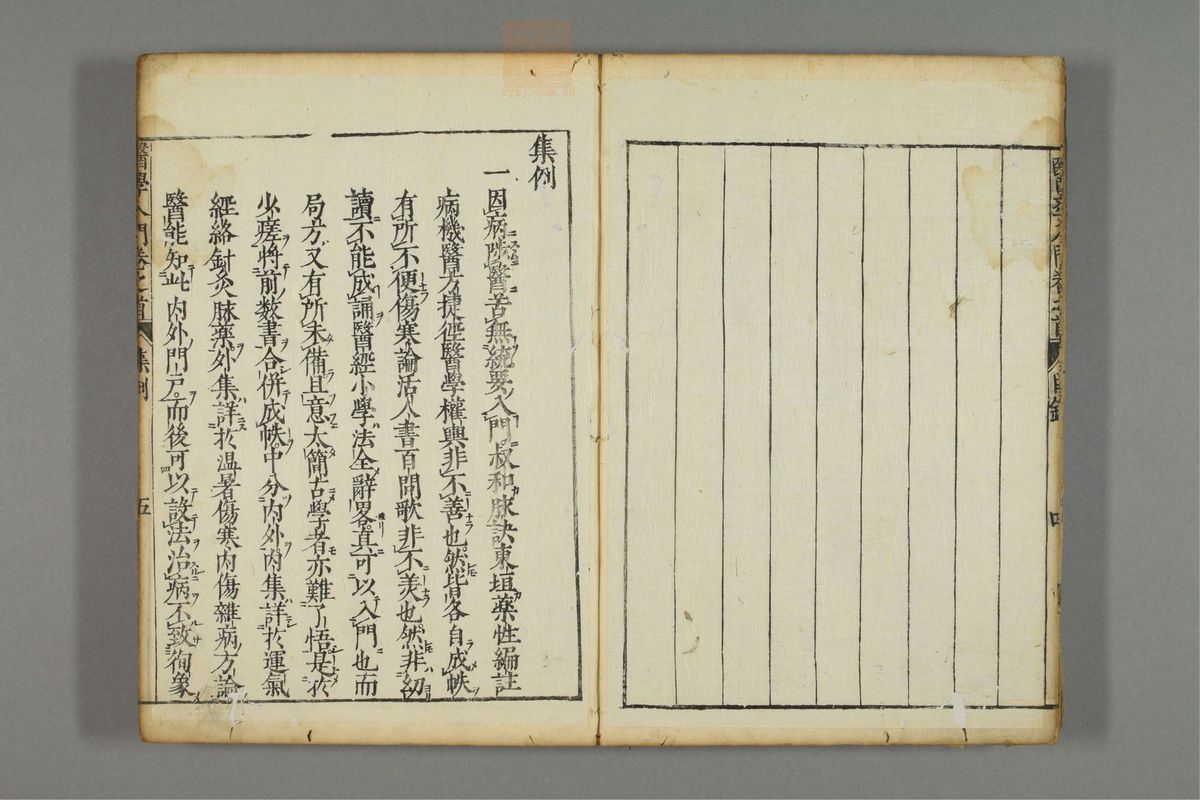 醫學入門卷之首
目錄
四
集例
一因病陟醫苦無統要入門叔和脉訣東垣藥性編註
病機醫方捷徑醫學權輿非不善也然皆各自成帙
有所不便傷寒論活人書百問歌非不美也然非幼
讀不能成誦醫經小學法全辭畧真可以入門也而
局方又有所未備且意太簡古學者亦難了悟是於
少瘥將前数書合併成帙中分内外内集詳於運氣
經絡針灸脉藥外集詳於温暑傷寒内傷雜病方論
醫能知此内外門戸而後可以設法治病不致徇象
醫學入門卷之首
集例
五